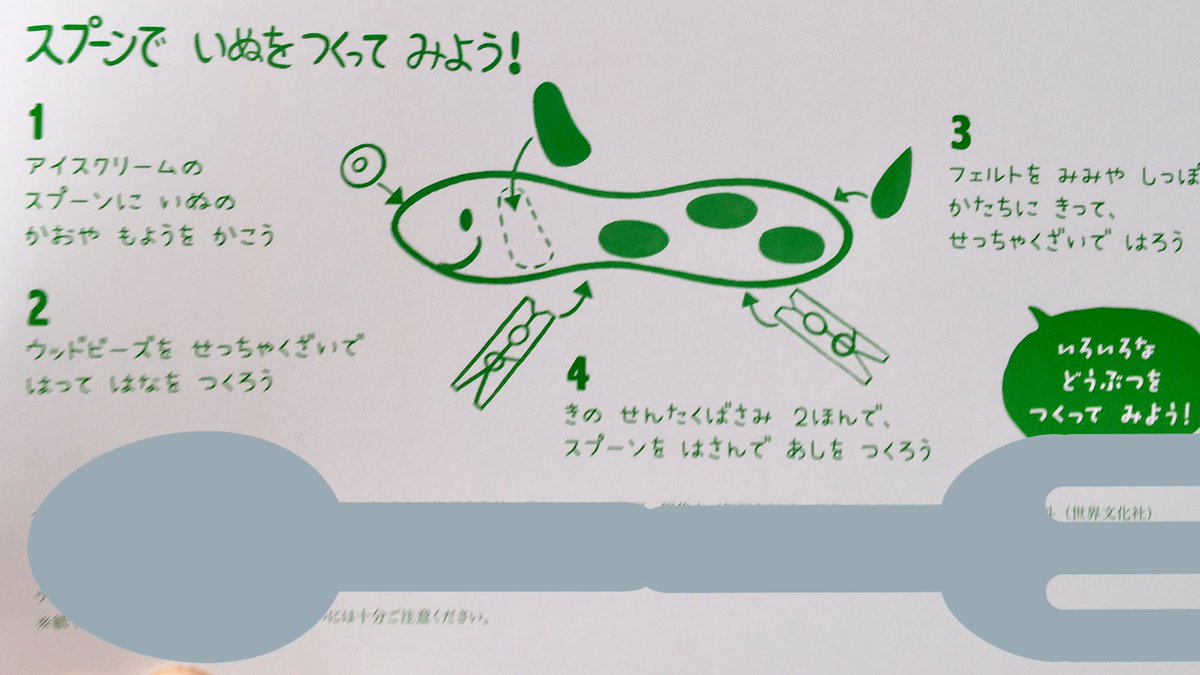 スプーンで いぬを つくって みよう!
1
アイスクリームの
スプーンに いぬの
かおや もようを かこう
2
ウッドビーズを せっちゃくざいで
はって はなを つくろう
3
フェルトを みみや しっぽ
かたちに きって、
せっちゃくざいで はろう
4
きの せんたくばさみ 2ほんで、
スプーンを はさんで あしを つくろう
いろいろな
どうぶつを
つくって みよう!
(世界文化社)
には十分ご注意ください。